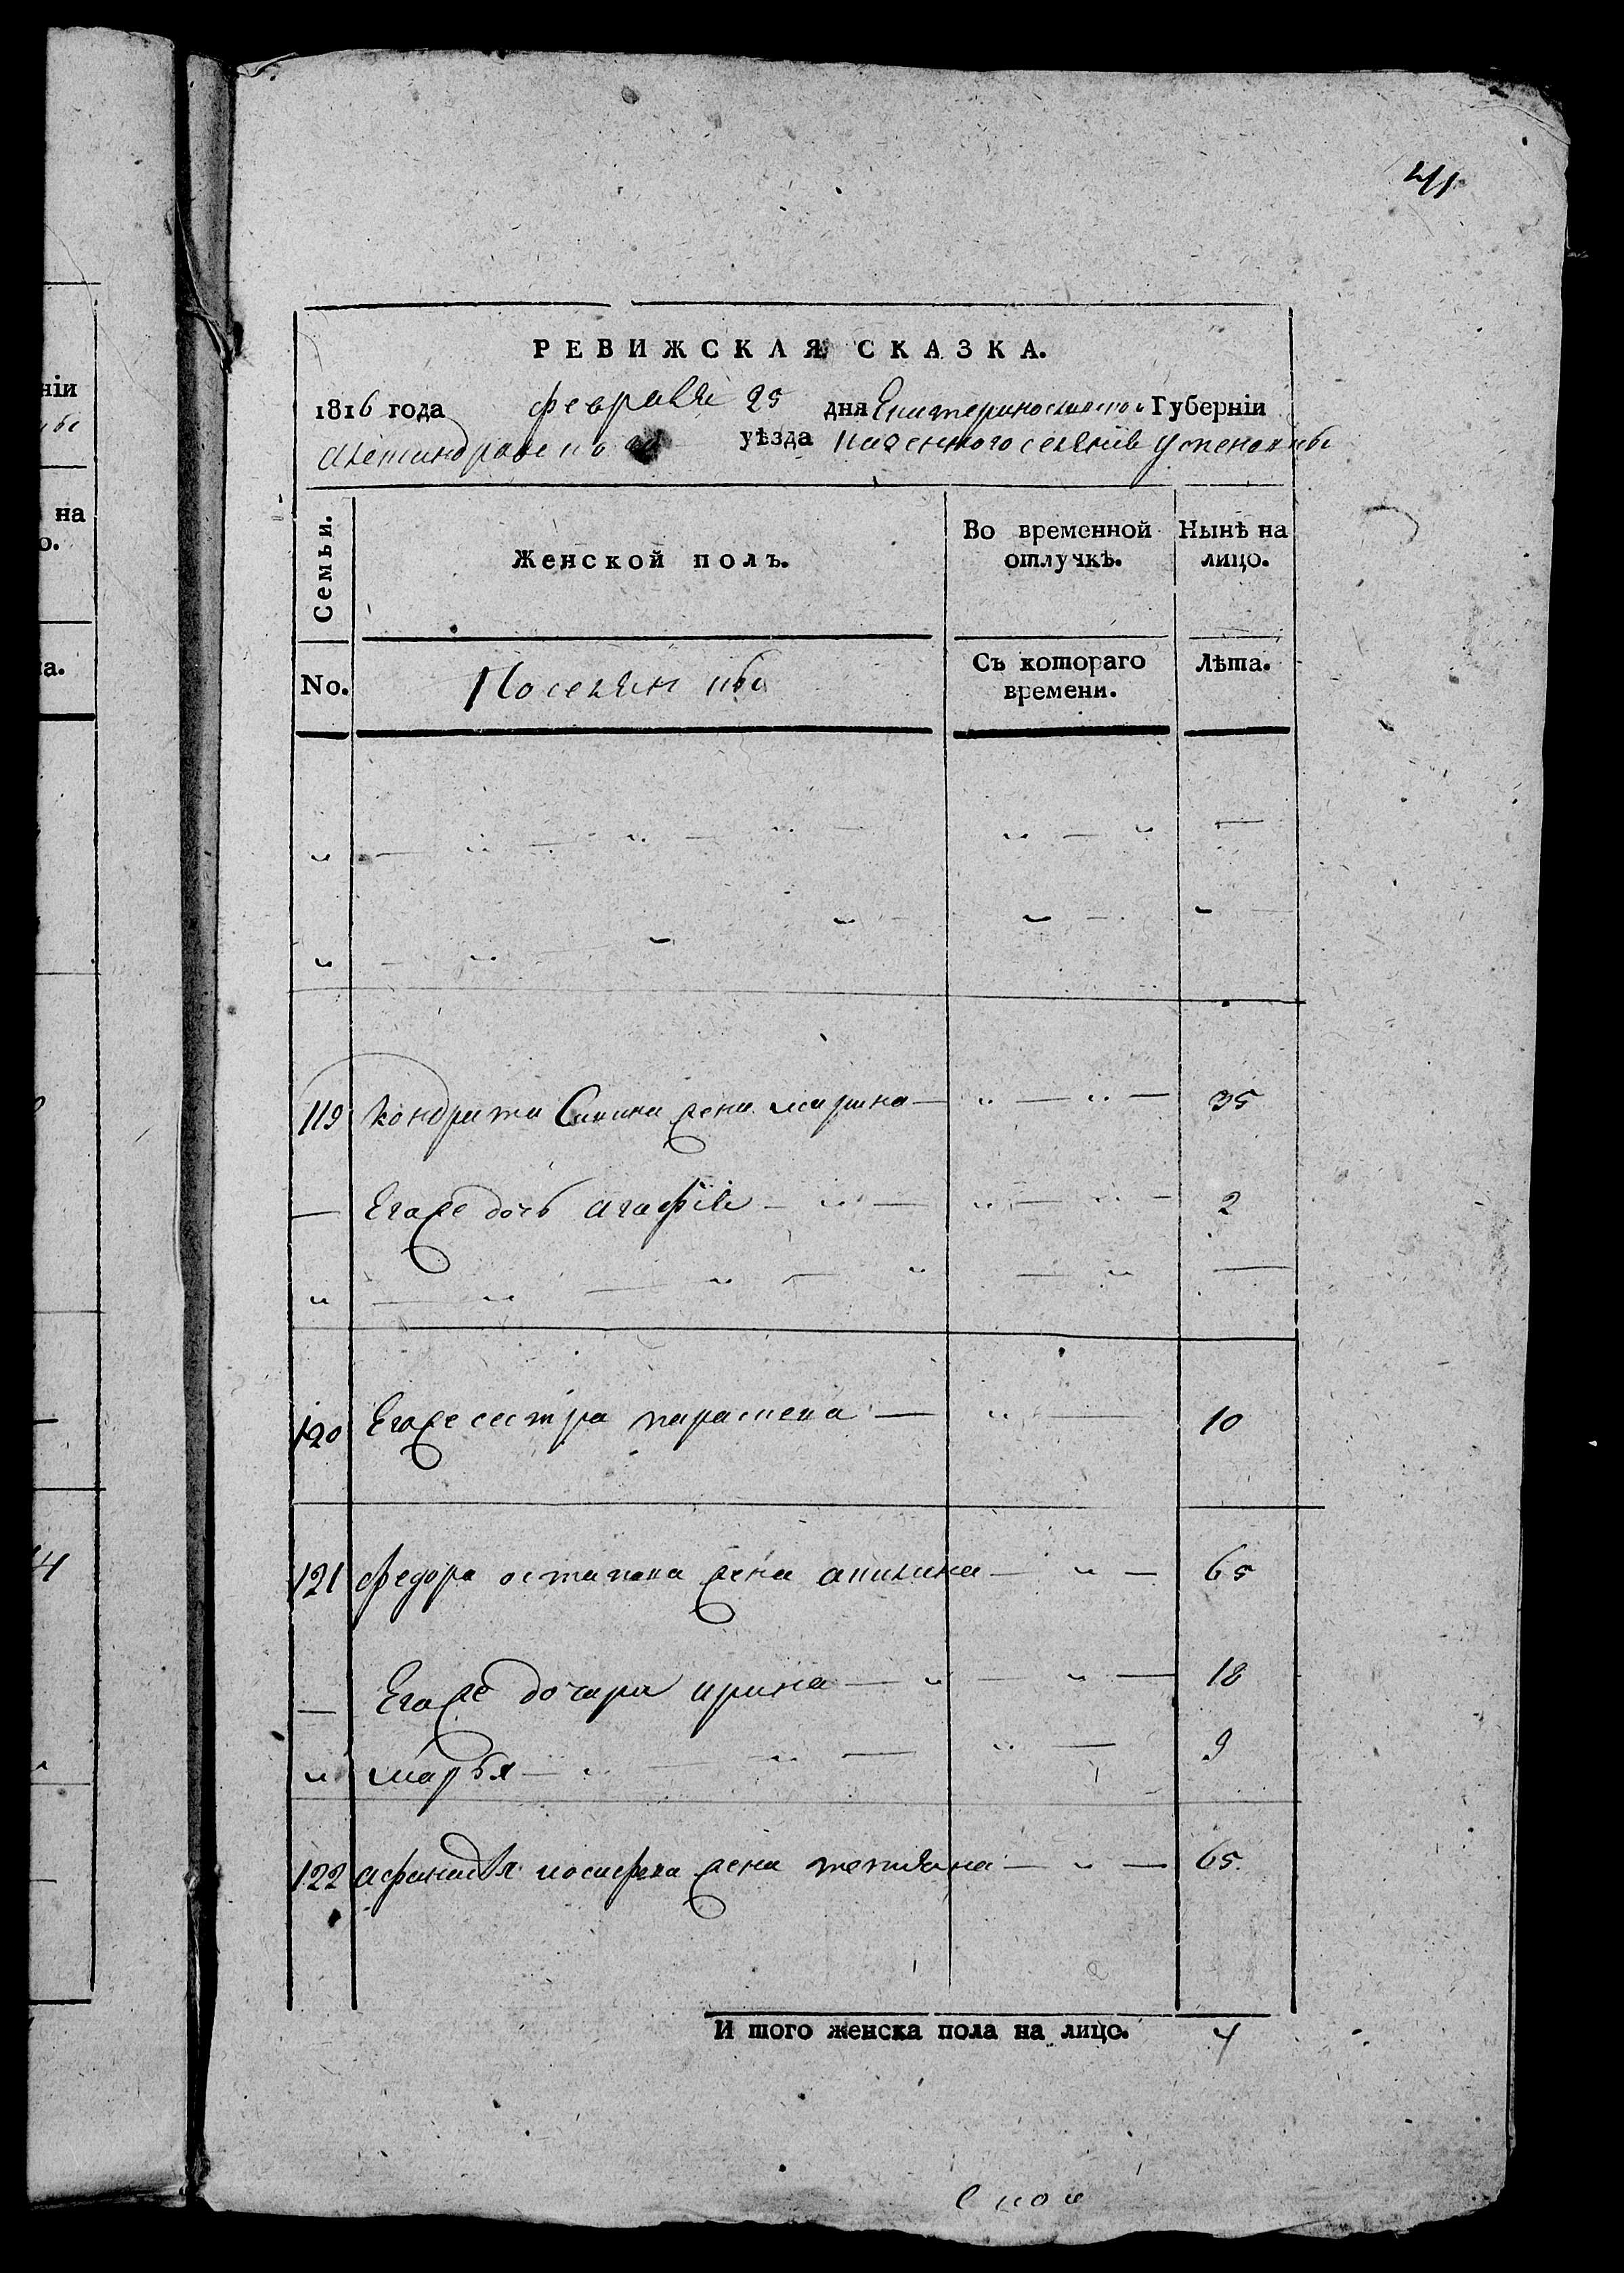 41
РЕВИЖСКАЯ СКАЗКА.
1816 года февраля 25 дня Екатериносла Губерніи
Александравскаго уѣзда казенного селенія Успеновки
Семьи.
Женской полъ.
Во временной отлучкѣ.
Нынѣ на лицо.
No.
Поселянки
Съ котораго времени.
Лѣта.
119 Кондрата жена марина — „ — „ — 35
— Егоже дочь агафія — „ — „ — „ — 2
120 Егоже сестра параскева — „ — 10
121 федора остапова жена акилина — „ — 65
— Егоже дочери ирина — „ — „ — 18
„ марья — „ — „ — „ — 9
122 афанасія иосифова жена татияна — „ — 65
И того женска пола на лицо. 7
ніи
на
о.
а.